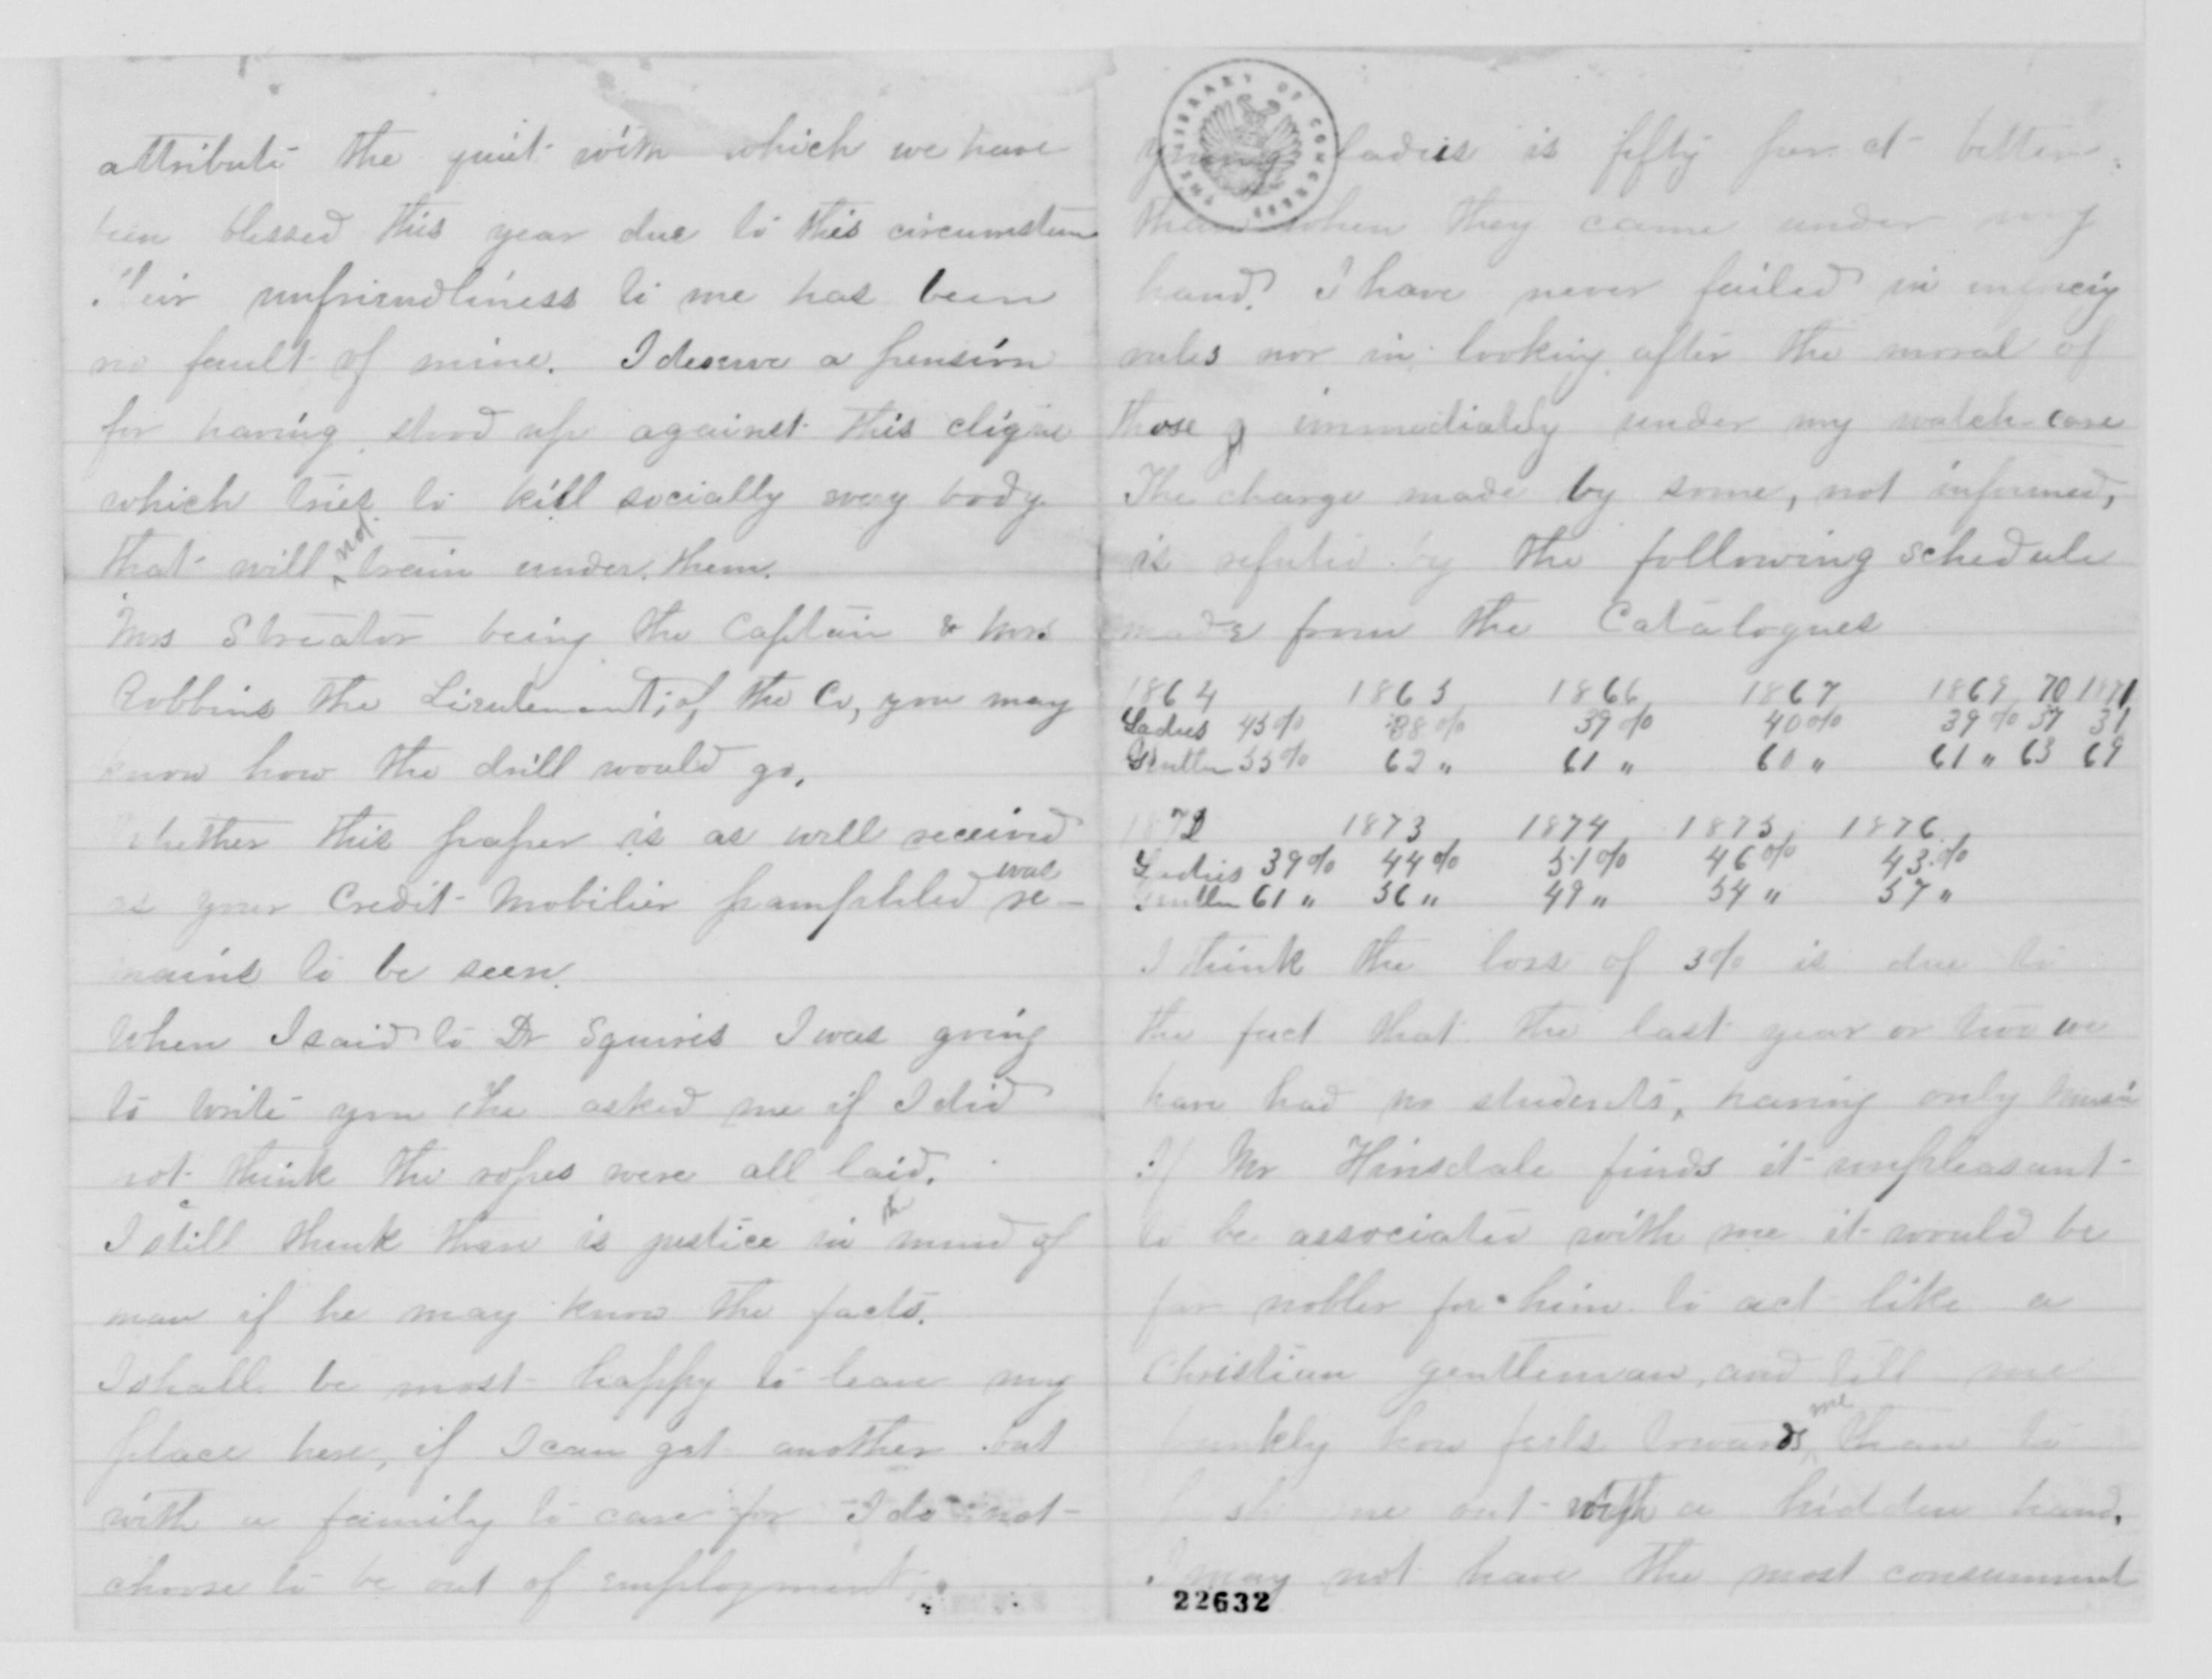 attribute the quiet with which we have
been blessed this year due to this circumstan
Their unfriendliness to me has been
no fault of mine. I deserve a pension
for having stood up against this clique
which tries to kill socially every body
that will not train under them.
Mrs Streator being the Captain & Mrs
Robbins the Lieutenant, of the Co, you may
know how the drill would go.
Whether this paper is as well received
as your Credit Mobilier pamphlet was re-
mains to be seen.
When I said to Dr Squires I was going
to write you he asked me if I did
not think the ropes were all laid.
I still think there is justice in the mind of
man if he may know the facts.
I shall be most happy to leave my
place here, if I can get another but
with a family to care for I do not
choose to be out of employment.
THE LIBRARY OF CONGRESS
young ladies is fifty per ct better
than when they came under my
hand. I have never failed in
rules nor in looking after the moral of
those immediately under my watch-care
The charge made by some, not informed,
is refuted by the following schedule
made from the Catalogues
1864 1865 1866 1867 1869 70 1871
Ladies 45% 38% 39% 40% 39% 37 31
Gentlm 55% 62 " 61 " 60 " 61 " 63 69
1872 1873 1874 1875 1876
Ladies 39% 44% 51% 46% 43%
Gentlm 61 " 56 " 49 " 54 " 57 "
I think the loss of 3% is due to
the fact that the last year or two we
have had no students, having only
If Mr Hinsdale finds it unpleasant
to be associated with me it would be
far nobler for him to act like a
Christian gentleman, and tell me
frankly how feels towards me than to
me out with a hidden hand.
I may not have the most consummat
22632